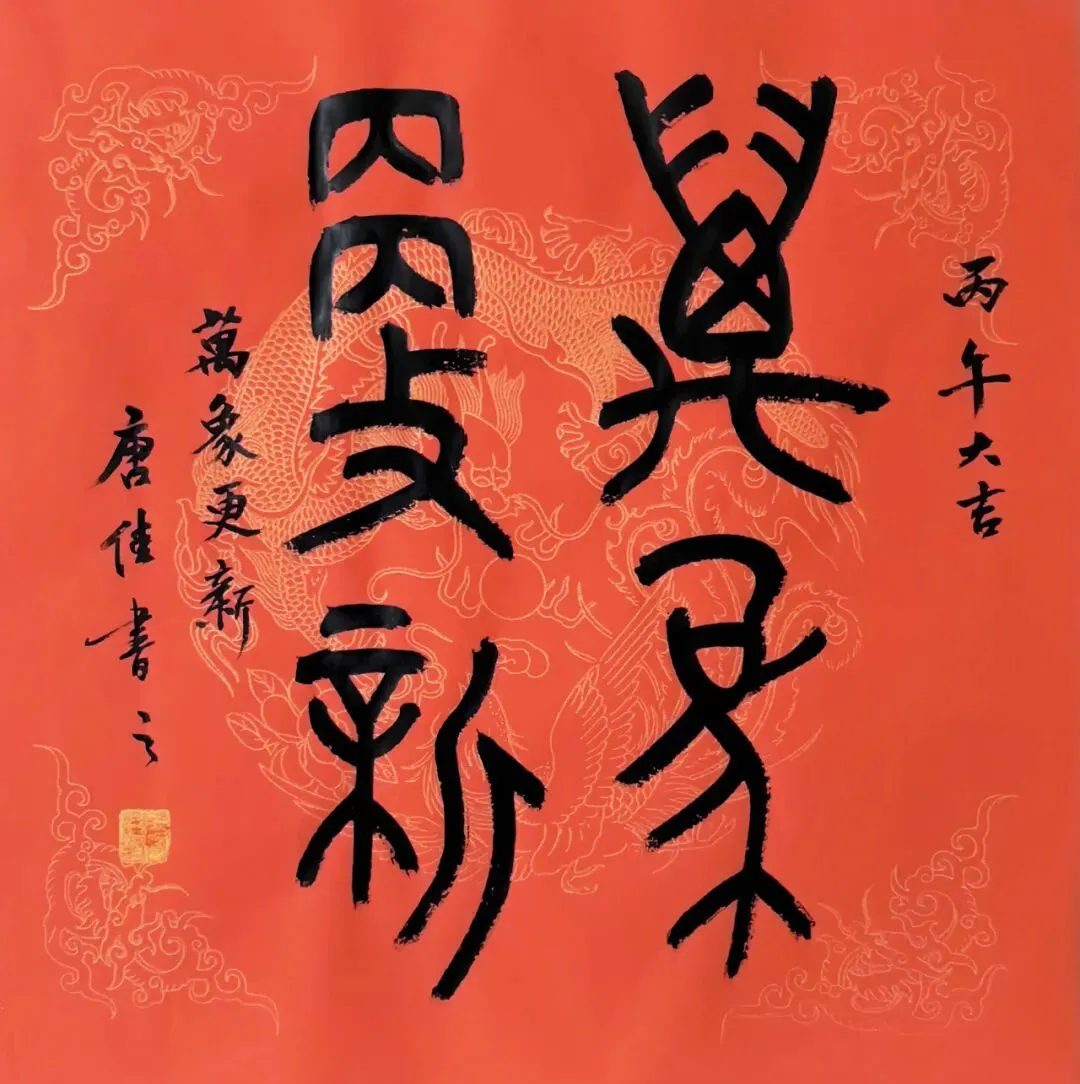 丙午大吉
萬象
更新
萬象更新
唐佳書之